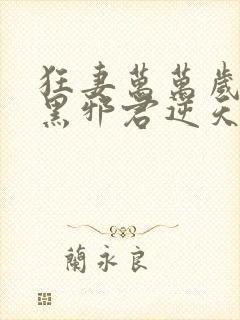 狂妻萬萬歲
黑邪君逆天
蘭永良